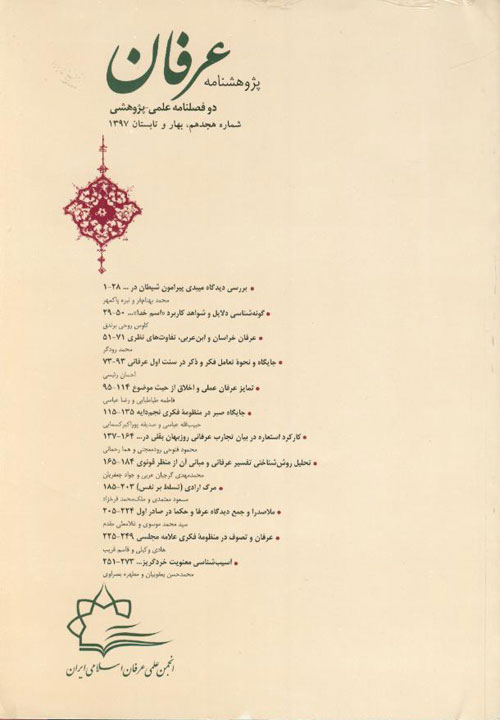 پژوهشنامه
عرفان
دو فصلنامه علمی-پژوهشی
شماره هجدهم، بهار و تابستان ۱۳۹۷
• بررسی دیدگاه میبدی پیرامون شیطان در ... ۲۸-۱
محمد بهنام‌فر و نیره پاکمهر
• گونه‌شناسی دلایل و شواهد کاربرد «اسم خدا»... ۵۰-۲۹
کاوس روحی برندق
• عرفان خراسان و ابن‌عربی، تفاوت‌های نظری ۷۱-۵۱
محمد رودگر
• جایگاه و نحوۀ تعامل فکر و ذکر در سنت اول عرفانی ۹۳-۷۳
احسان رئیسی
• تمایز عرفان عملی و اخلاق از حیث موضوع ۱۱۴-۹۵
فاطمه طباطبایی و رضا عباسی
• جایگاه صبر در منظومۀ فکری نجم‌دایه ۱۳۵-۱۱۵
حبیب‌الله عباسی و صدیقه پوراکبرکسمایی
• کارکرد استعاره در بیان تجارب عرفانی روزبهان بقلی در... ۱۶۴-۱۳۷
محمود فتوحی رودمعجنی و هما رحمانی
• تحلیل روش‌شناختی تفسیر عرفانی و مبانی آن از منظر قونوی ۱۸۴-۱۶۵
محمدمهدی گرجیان عربی و جواد جعفریان
• مرگ ارادی (تسلط بر نفس) ۲۰۳-۱۸۵
مسعود معتمدی و ملک‌محمد فرخزاد
• ملاصدرا و جمع دیدگاه عرفا و حکما در صادر اول ۲۲۴-۲۰۵
سید محمد موسوی و غلامعلی مقدم
• عرفان و تصوف در منظومۀ فکری علامه مجلسی ۲۴۹-۲۲۵
هادی وکیلی و قاسم غریب
• آسیب‌شناسی معنویت خردگریز... ۲۷۳-۲۵۱
محمدحسن یعقوبیان و مطهره بصراوی
انجمن علمی عرفان اسلامی ایران